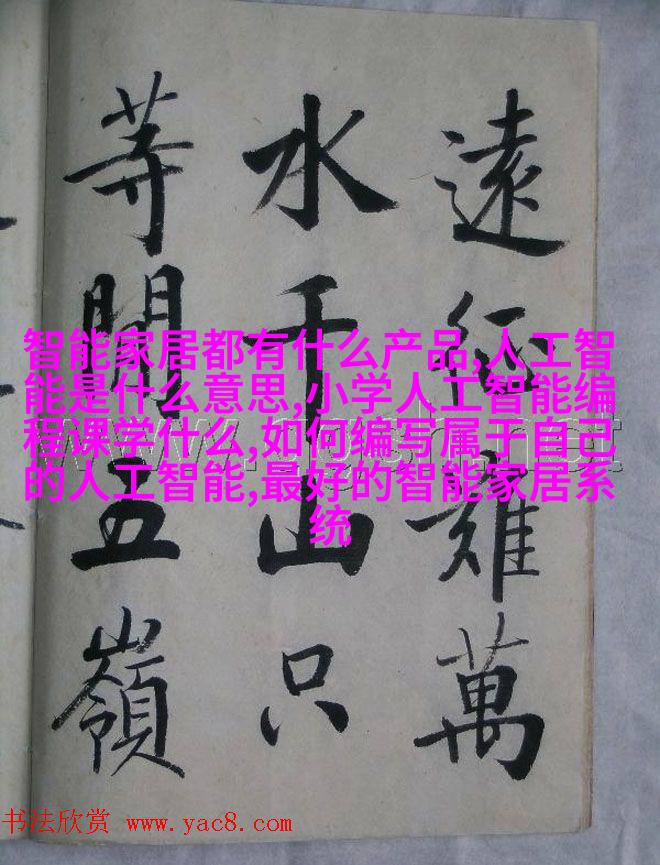 遠征難萬
水千山只
等閒五嶺
智能家居都有什么产品,人工智
能是什么意思,小学人工智能编
程课学什么,如何编写属于自己
的人工智能,最好的智能家居系
统
书法欣赏 www.yac8.com